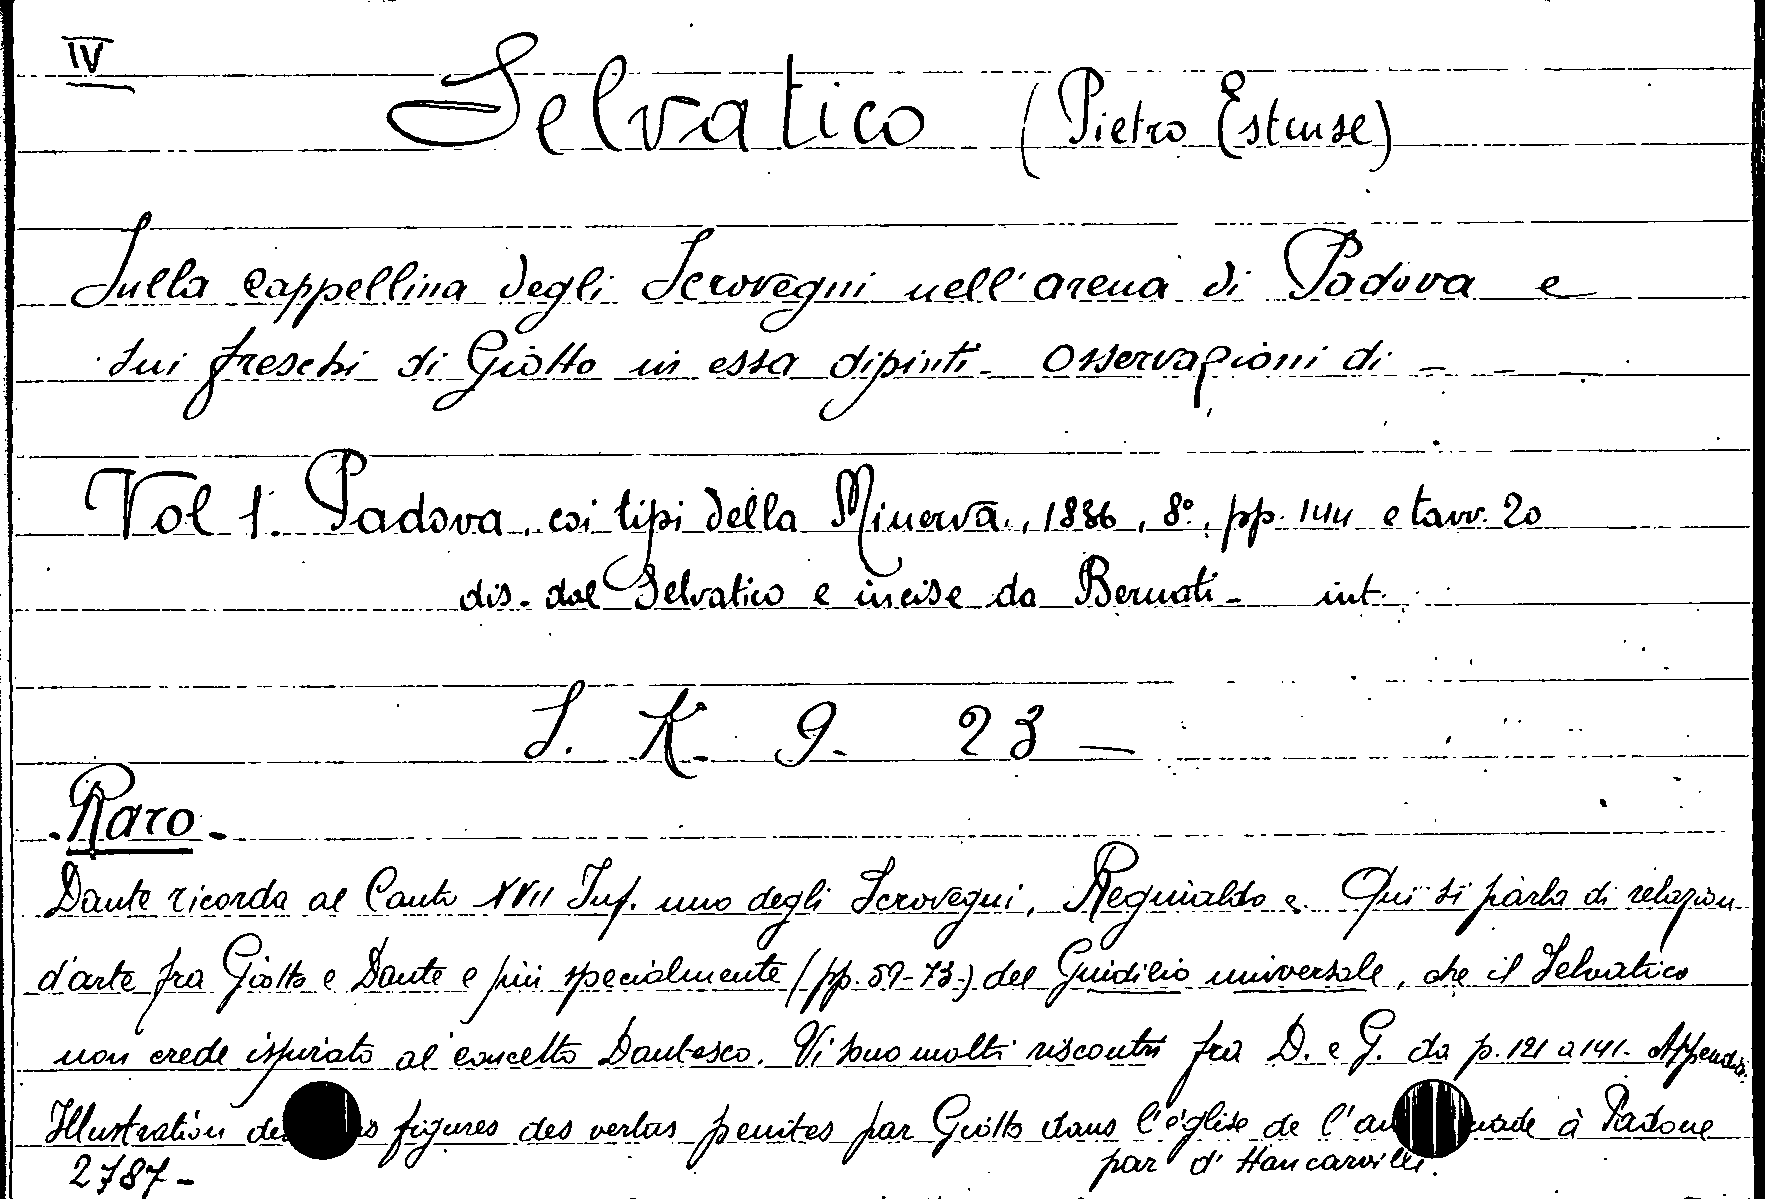 IV
Selvatico (Pietro Estense)
Sulla cappellina degli Scrovegni nell'arena di Padova e
sui freschi di Giotto in essa dipinti - Osservazioni di - - -
Vol 1. Padova, coi tipi della Minerva, 1836, 8°, pp. 144 e tavv. 20
dis. dal Selvatico e incise da Bernati - int.
S. K. 9. 23 —
- Raro -
Dante ricorda al Canto XVII Inf. uno degli Scrovegni, Reginaldo e. Qui si parla di relazion
d'arte fra Giotto e Dante e più specialmente (pp. 59-73-) del Guidizio universale, che il Selvatico
non crede ispirato al concetto Dantesco. Vi sono molti riscontri fra D. e G. da p. 121 a 141. Appendic.
Illustration figures des vertus peintes par Giotto dans l'église de l' à Padoue
2787 - par d'Hancarville.